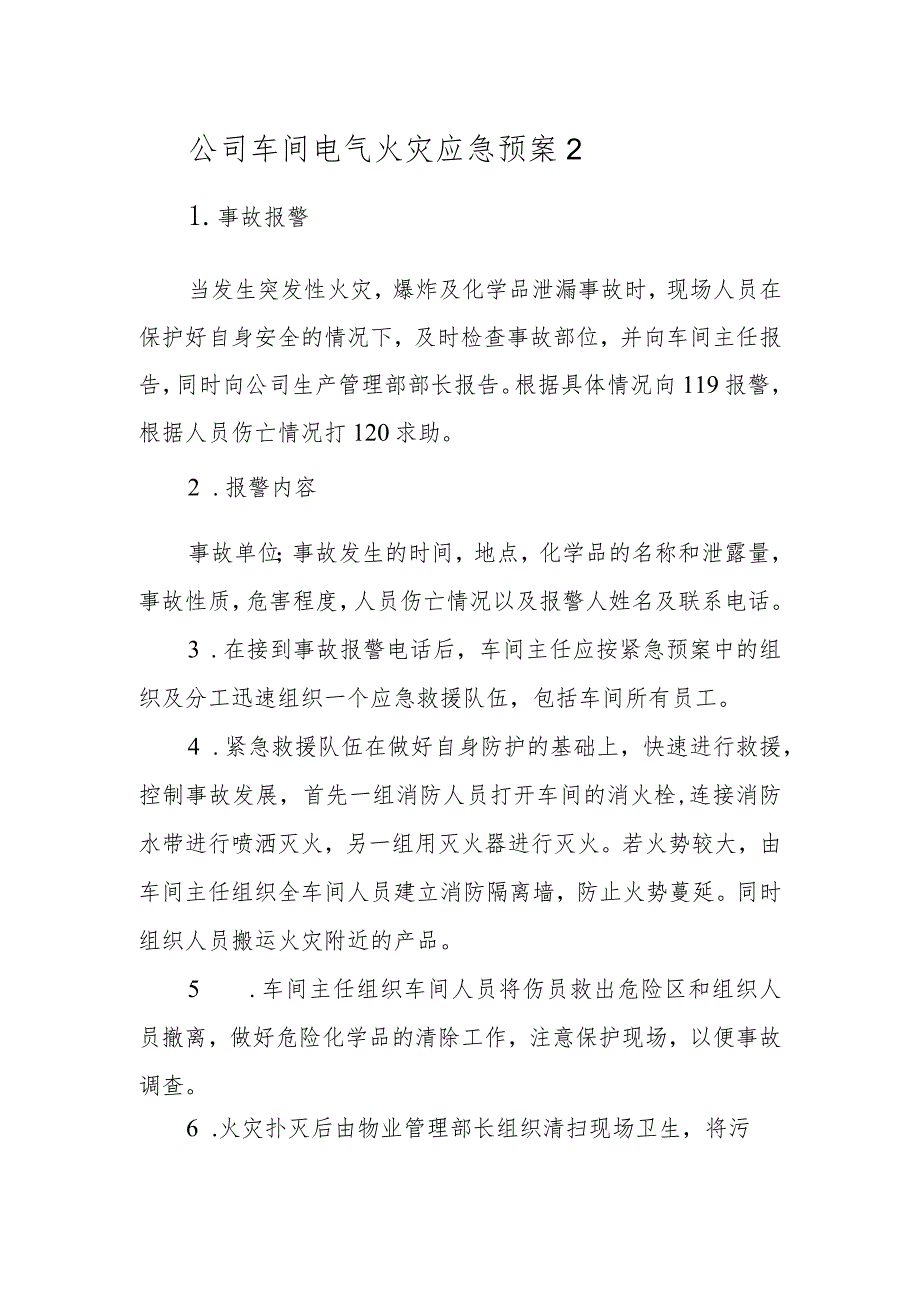 公司车间电气火灾应急预案2
1.事故报警
当发生突发性火灾，爆炸及化学品泄漏事故时，现场人员在
保护好自身安全的情况下，及时检查事故部位，并向车间主任报
告，同时向公司生产管理部部长报告。根据具体情况向119报警，
根据人员伤亡情况打120求助。
2 .报警内容
事故单位；事故发生的时间，地点，化学品的名称和泄露量，
事故性质，危害程度，人员伤亡情况以及报警人姓名及联系电话。
3 .在接到事故报警电话后，车间主任应按紧急预案中的组
织及分工迅速组织一个应急救援队伍，包括车间所有员工。
4 .紧急救援队伍在做好自身防护的基础上，快速进行救援，
控制事故发展，首先一组消防人员打开车间的消火栓,连接消防
水带进行喷洒灭火，另一组用灭火器进行灭火。若火势较大，由
车间主任组织全车间人员建立消防隔离墙，防止火势蔓延。同时
组织人员搬运火灾附近的产品。
5 .车间主任组织车间人员将伤员救出危险区和组织人
员撤离，做好危险化学品的清除工作，注意保护现场，以便事故
调查。
6 .火灾扑灭后由物业管理部长组织清扫现场卫生，将污